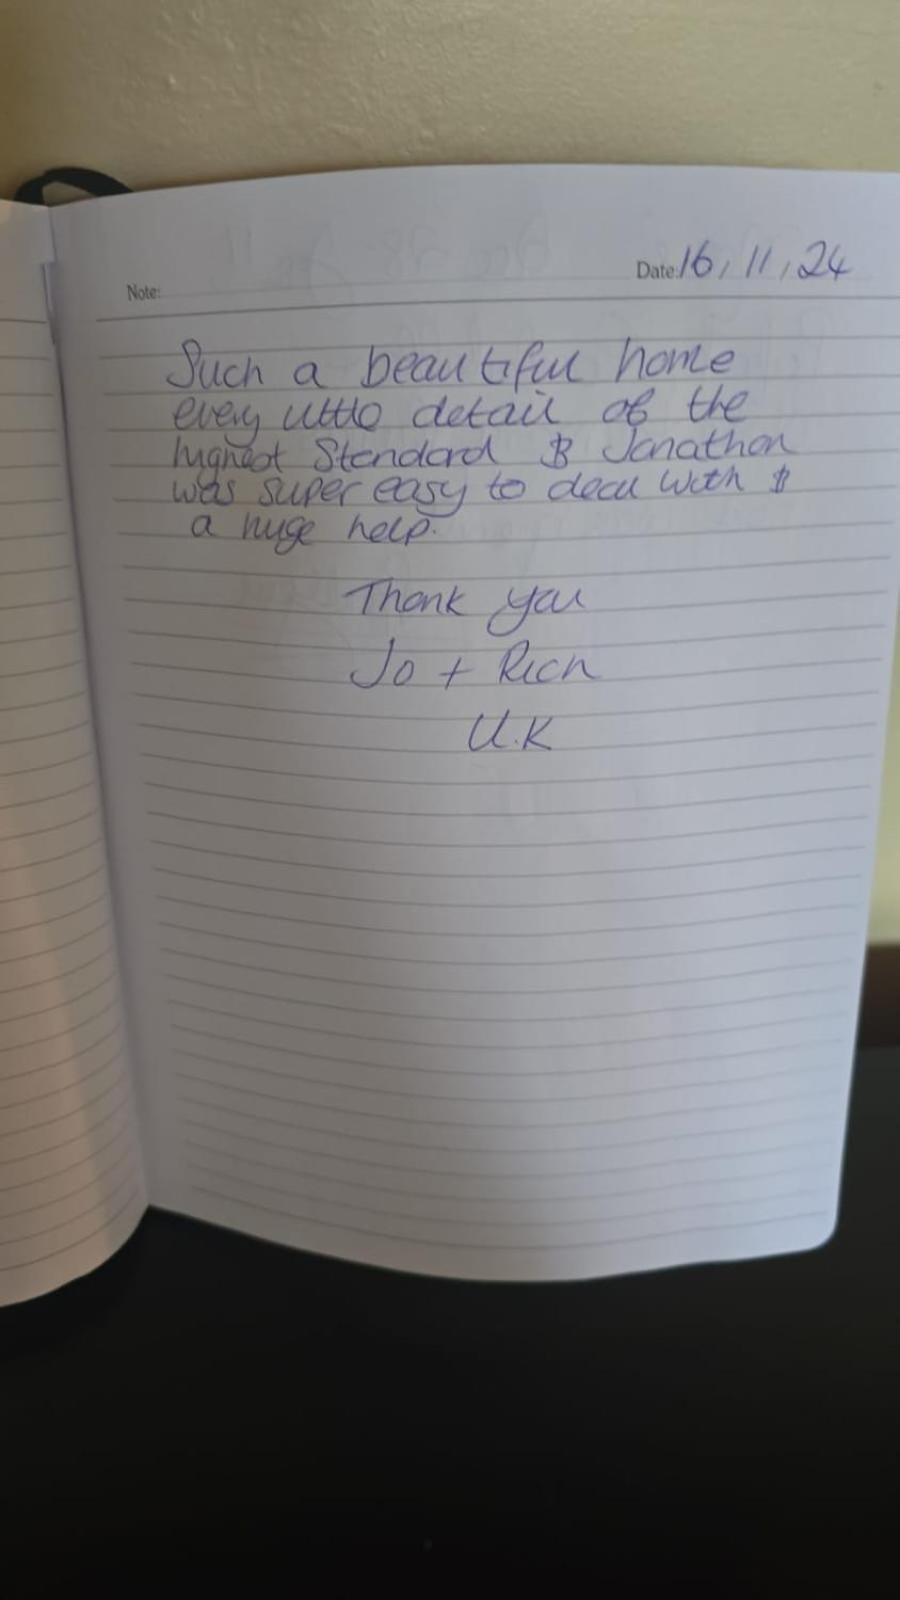 Note:
Date: 16, 11, 24
Such a beautiful home
every little detail of the
highest Standard & Jonathon
was super easy to deal with &
a huge help.
Thank you
Jo + Rich
U.K